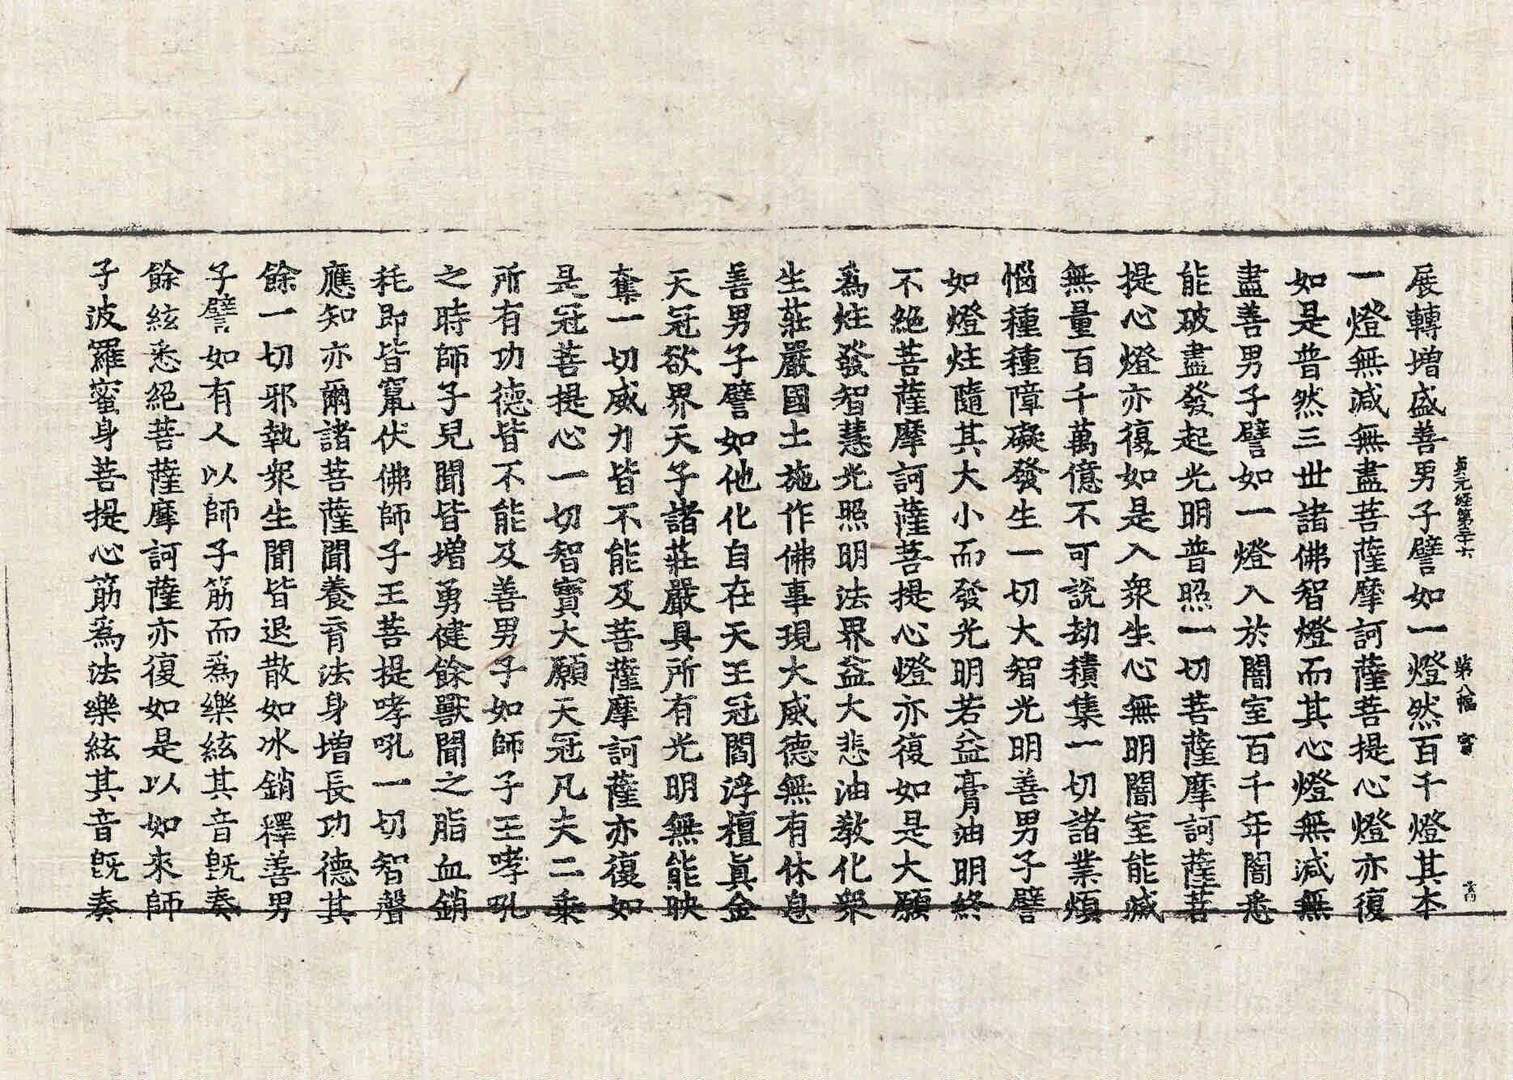 貞元經第三十六 第八幅 寧
展轉增盛善男子譬如一燈然百千燈其本
一燈無減無盡菩薩摩訶薩菩提心燈亦復
如是普然三世諸佛智燈而其心燈無減無
盡善男子譬如一燈入於闇室百千年闇悉
能破盡發起光明普照一切菩薩摩訶薩菩
提心燈亦復如是入衆生心無明闇室能滅
無量百千萬億不可說劫積集一切諸業煩
惱種種障礙發生一切大智光明善男子譬
如燈炷隨其大小而發光明若益膏油明終
不絕菩薩摩訶薩菩提心燈亦復如是大願
爲炷發智慧光照明法界益大悲油教化衆
生莊嚴國土施作佛事現大威德無有休息
善男子譬如他化自在天王冠閻浮檀眞金
天冠欲界天子諸莊嚴具所有光明無能映
奪一切威力皆不能及菩薩摩訶薩亦復如
是冠菩提心一切智寶大願天冠凡夫二乘
所有功德皆不能及善男子如師子王哮吼
之時師子兒聞皆增勇健餘獸聞之脂血銷
耗即皆竄伏佛師子王菩提哮吼一切智聲
應知亦爾諸菩薩聞養育法身增長功德其
餘一切邪執衆生聞皆退散如冰銷釋善男
子譬如有人以師子筋而爲樂絃其音旣奏
餘絃悉絕菩薩摩訶薩亦復如是以如來師
子波羅蜜身菩提心筋爲法樂絃其音旣奏